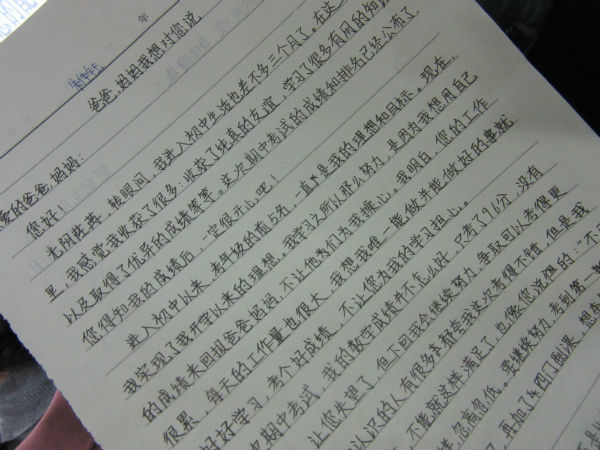 年
爸爸,妈妈我想对您说
爱的爸爸,妈妈:
您好!
光阴荏苒,转眼间,我进入初中生活也差不多三个月了。在这
里,我感觉我收获了很多:收获了纯真的友谊,学习了很多有用的知识
以及取得了优异的成绩等等。这次期中考试的成绩和排名已经公布了
您得知我的成绩后,一定很开心吧!
进入初中以来,考年级的前5名,一直是我的理想和目标。现在,
我实现了我开学以来的理想。我学习之所以那么努力,是因为我想用自己
的成绩来回报爸爸妈妈,不让他为们为我操心。我明白,您的工作
很累,每天的工作量也很大,我想我唯一能做并能做好的事就
好好学习,考个好成绩,不让您为我的学习担心。
期中考试,我的数学成绩并不怎么好,只考了96分,没有
让您失望了,但下回我会继续努力,争取可以考得更
认识的人有很多都夸我这次考得不错,但是我
不能就这样满足了,也像您说过的:“不
忽高忽低。要继续努力,考到第一
再加了四门副课,想